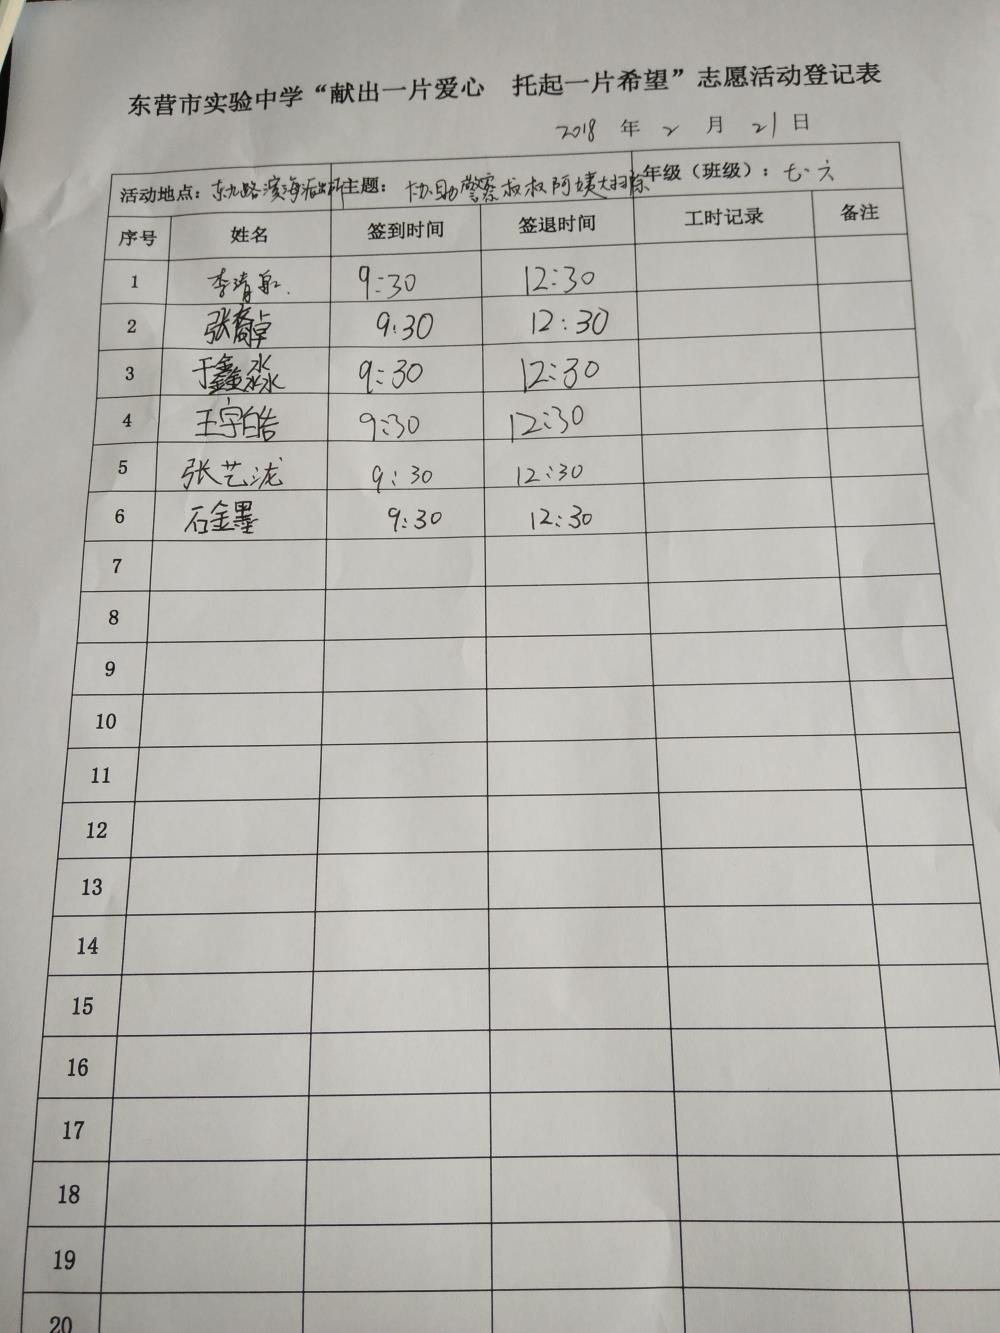 东营市实验中学“献出一片爱心 托起一片希望”志愿活动登记表
2018 年 2 月 21 日
活动地点：东九路滨海派出所 主题：协助警察叔叔阿姨大扫除 年级（班级）：七·六
序号 姓名 签到时间 签退时间 工时记录 备注
1 李清泉 9:30 12:30
2 张裔卓 9:30 12:30
3 于鑫淼 9:30 12:30
4 王宇皓 9:30 12:30
5 张艺泷 9:30 12:30
6 石金墨 9:30 12:30
7
8
9
10
11
12
13
14
15
16
17
18
19
20